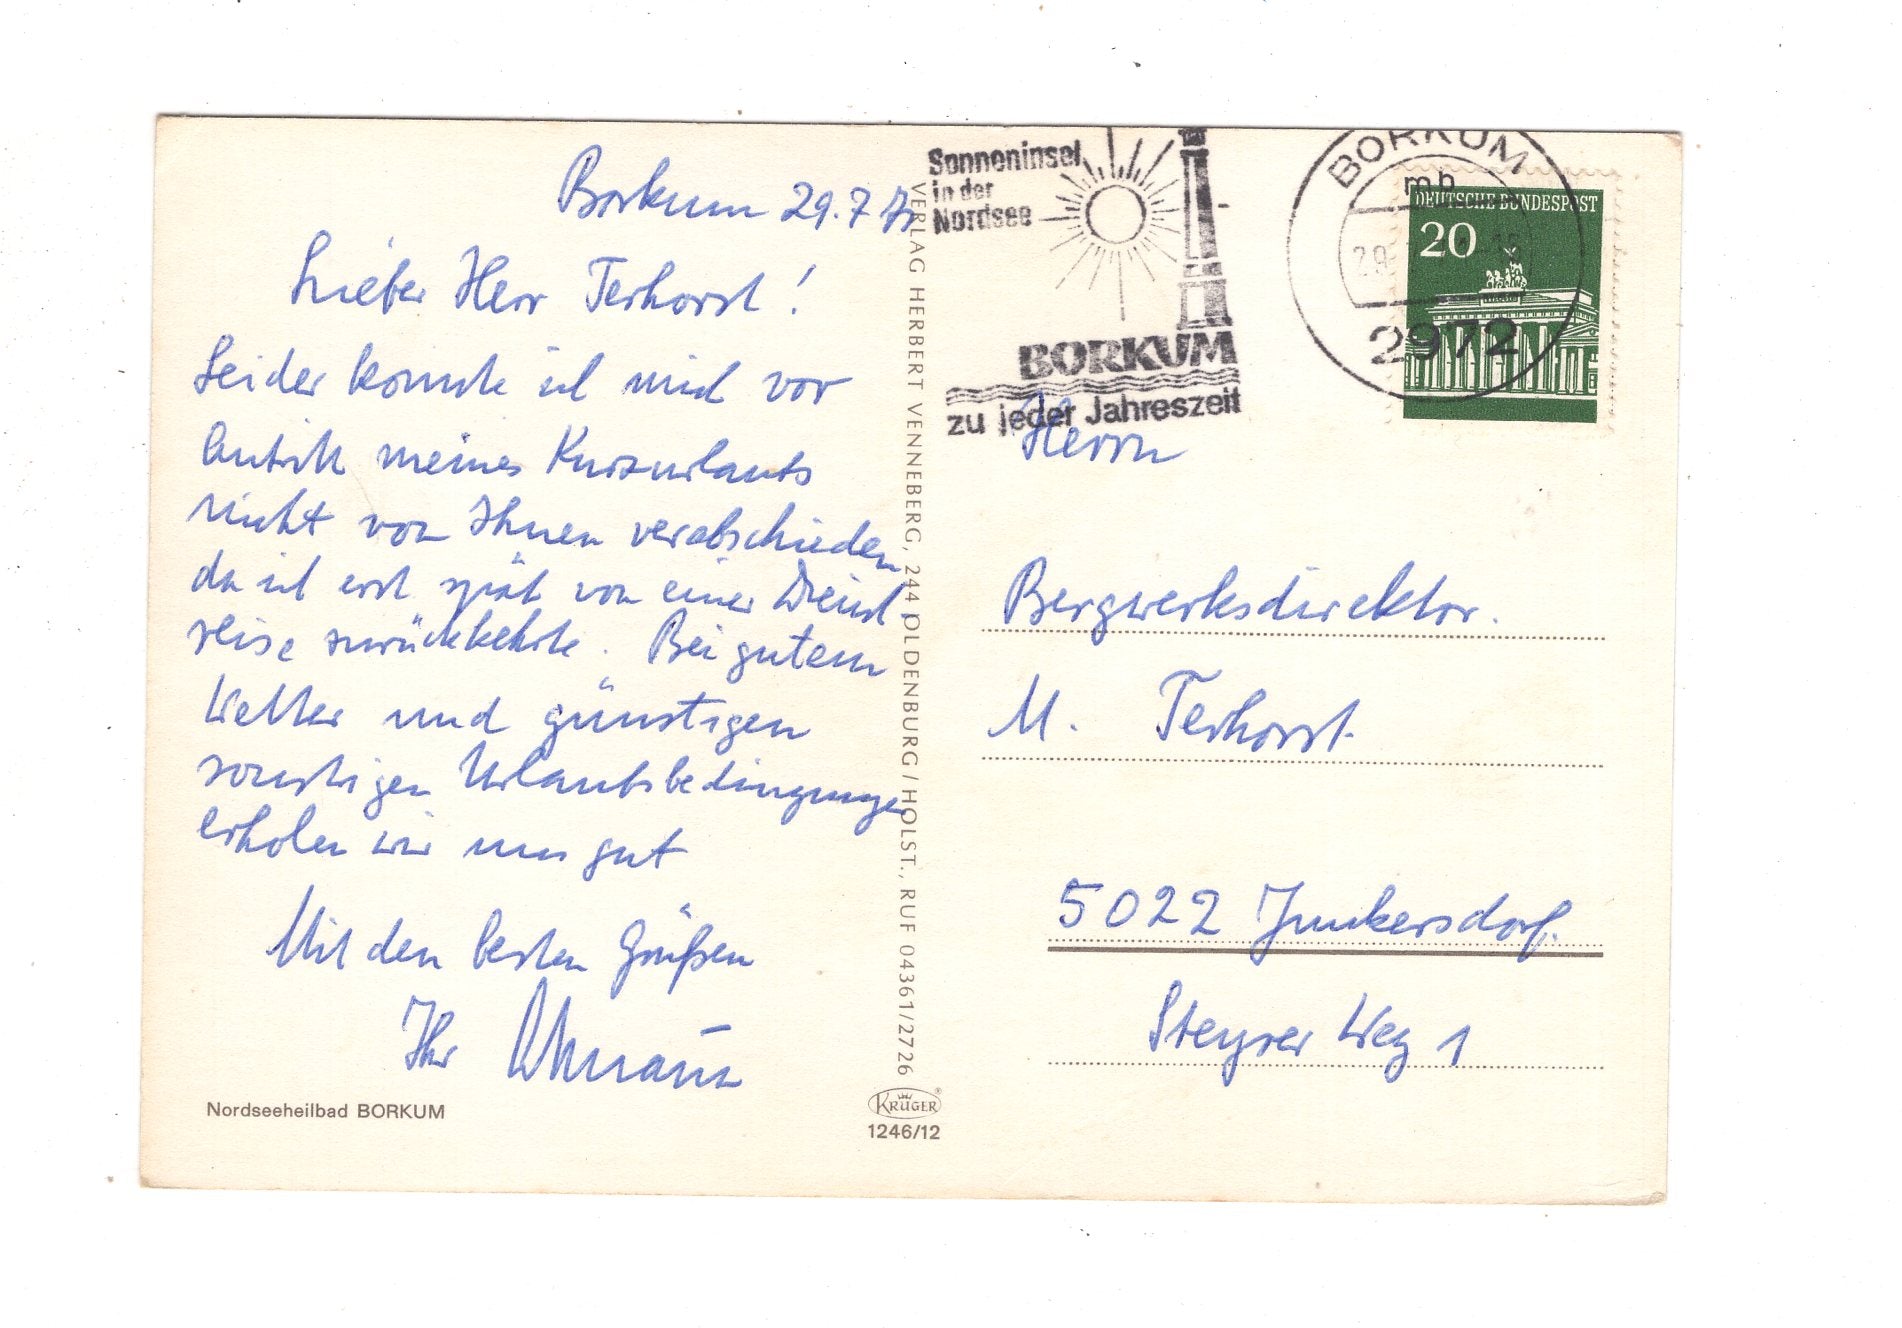 Borkum 29.7.71
Lieber Herr Terhorst!
Leider konnte ich mich vor
Antritt meines Kurzurlaubs
nicht von Ihnen verabschieden
da ich erst spät von einer Dienst
reise zurückkehrte. Bei gutem
Wetter und günstigen
sonstigen Urlaubsbedingungen
erholen wir uns gut
Mit den besten Grüßen
Ihr
Nordseeheilbad BORKUM
VERLAG HERBERT VENNEBERG, 244 OLDENBURG/HOLST., RUF 04361/2726
KRÜGER
1246/12
Sonneninsel
in der
Nordsee
BORKUM
zu jeder Jahreszeit
BORKUM
mb
2972
DEUTSCHE BUNDESPOST
20
Herrn
Bergwerksdirektor.
M. Terhorst
5022 Junkersdorf.
Steyrer Weg 1